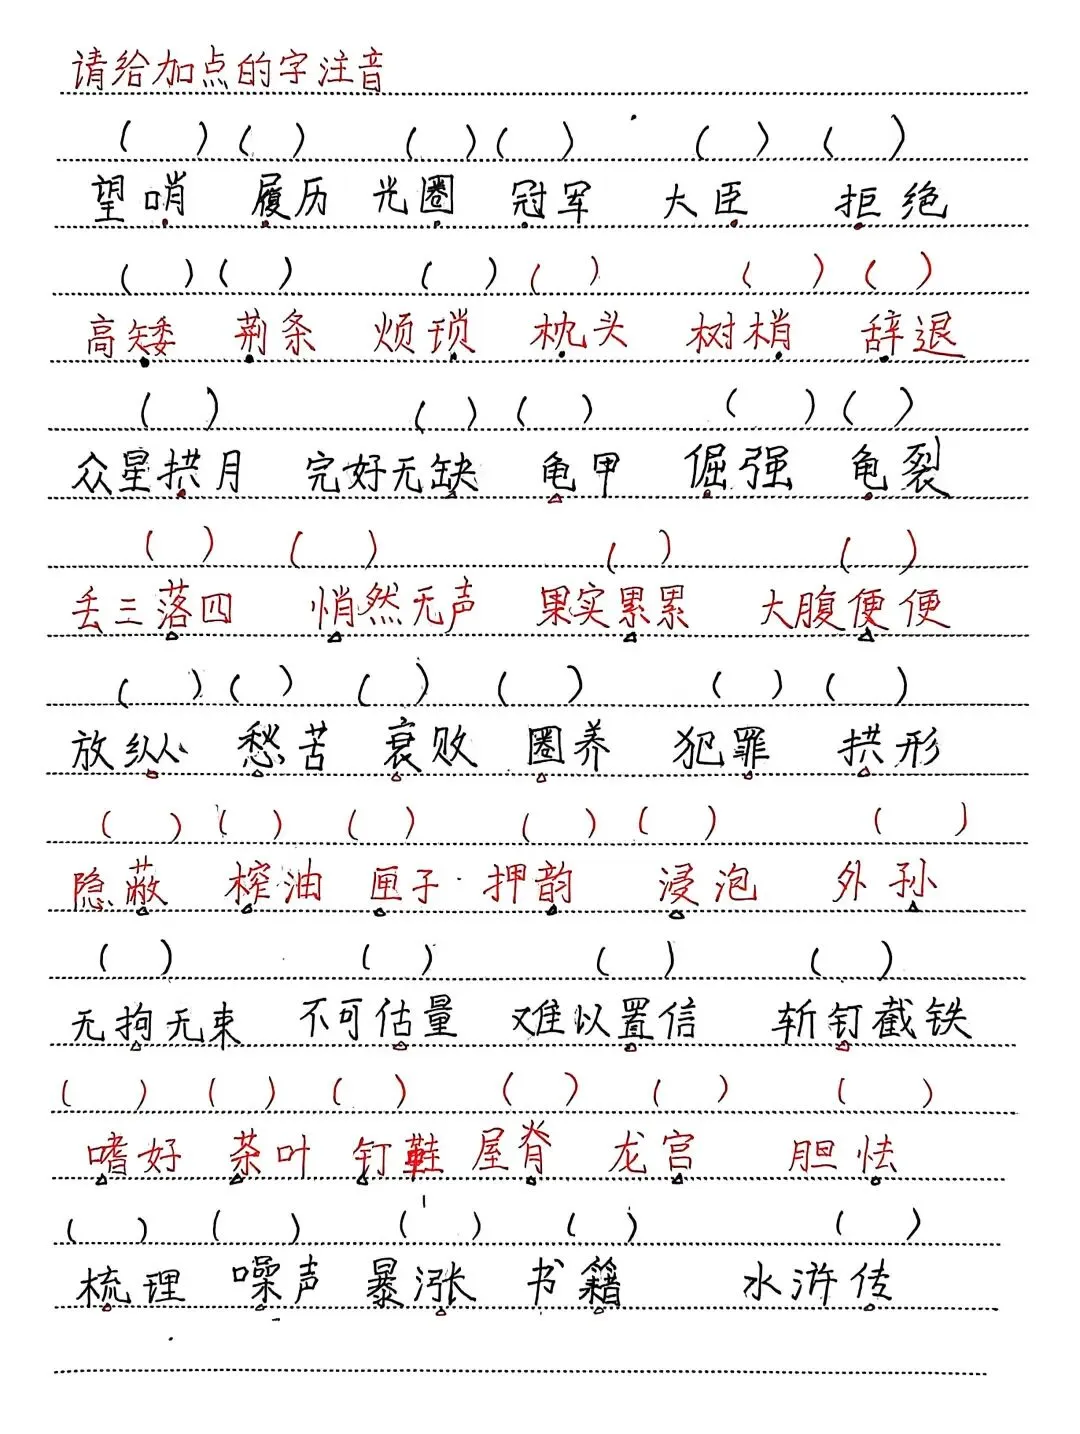 请给加点的字注音
(  ) (  ) (  ) (  ) (  ) (  )
望哨 履历 光圈 冠军 大臣 拒绝
(  ) (  ) (  ) (  ) (  ) (  )
高矮 荆条 烦琐 枕头 树梢 辞退
(  ) (  ) (  ) (  ) (  )
众星拱月 完好无缺 龟甲 倔强 龟裂
(  ) (  ) (  ) (  )
丢三落四 悄然无声 果实累累 大腹便便
(  ) (  ) (  ) (  ) (  ) (  )
放纵 愁苦 衰败 圈养 犯罪 拱形
(  ) (  ) (  ) (  ) (  ) (  )
隐蔽 榨油 匣子 押韵 浸泡 外孙
(  ) (  ) (  ) (  )
无拘无束 不可估量 难以置信 斩钉截铁
(  ) (  ) (  ) (  ) (  ) (  )
嗜好 茶叶 钉鞋 屋脊 龙宫 胆怯
(  ) (  ) (  ) (  ) (  )
梳理 噪声 暴涨 书籍 水浒传